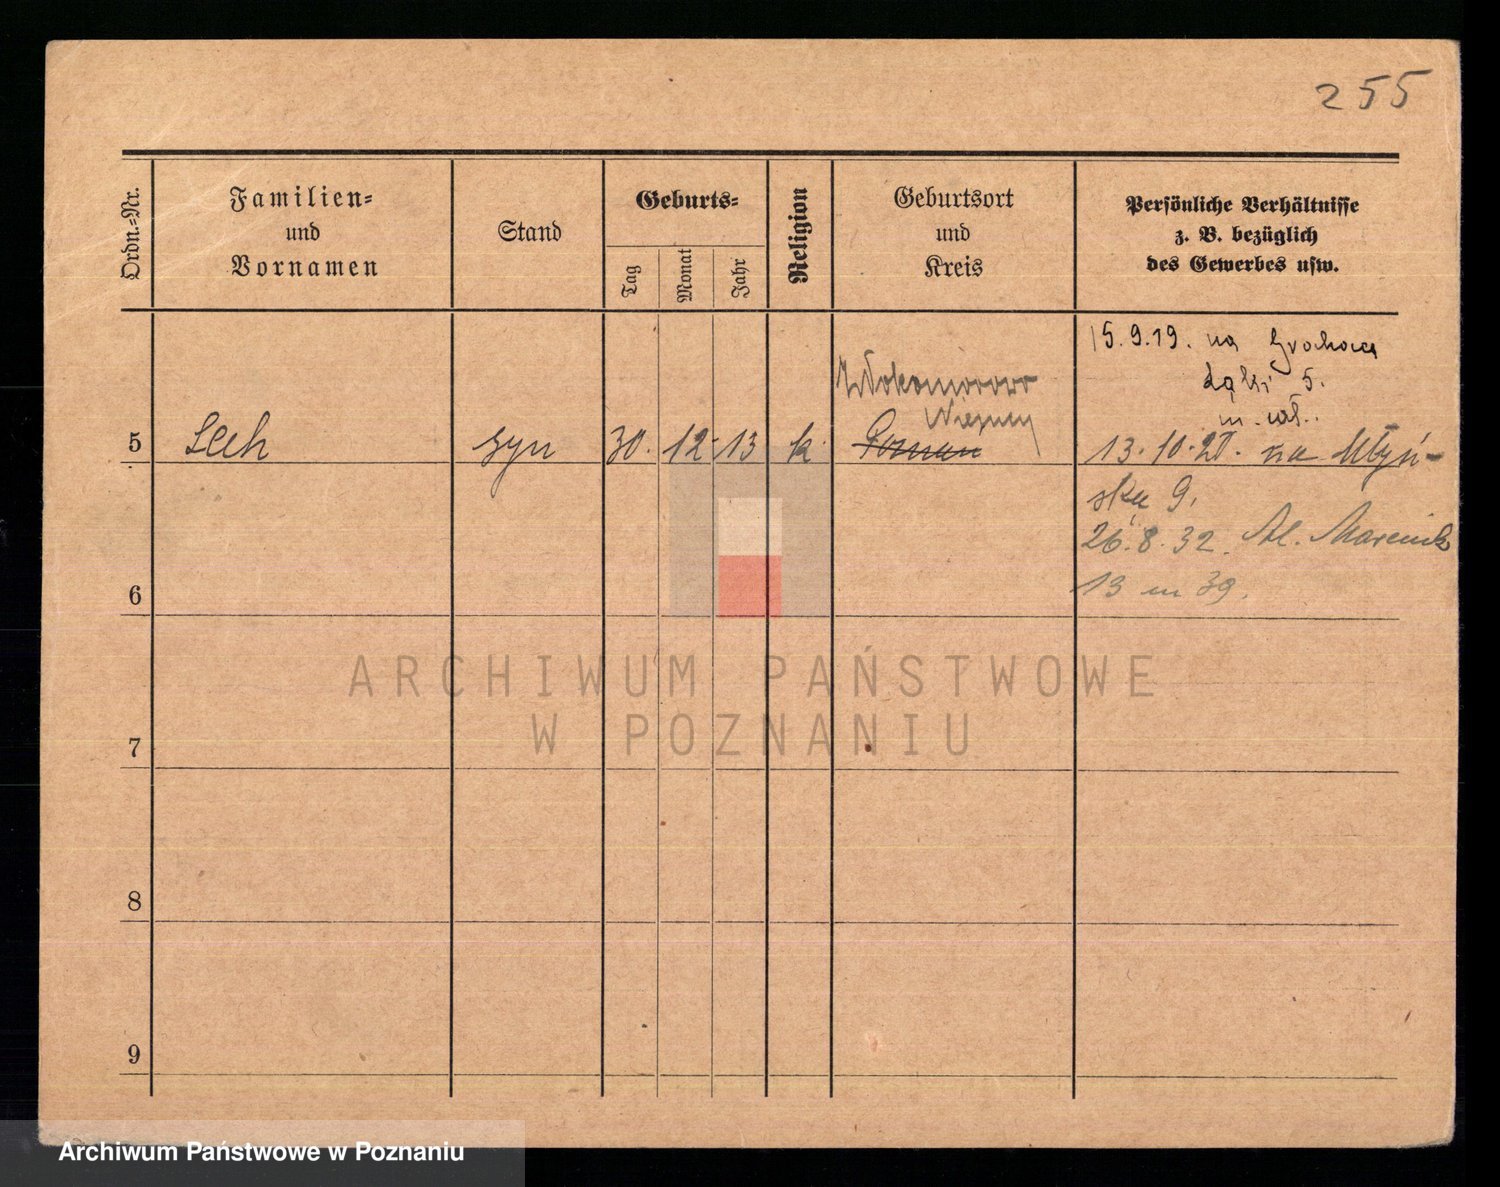 255
Ordn.-Nr.
Familien-
und
Vornamen
Stand
Geburts-
Tag
Monat
Jahr
Religion
Geburtsort
und
Kreis
Persönliche Verhältnisse
z. B. bezüglich
des Gewerbes usw.
15.9.19. na Grochowe
Łąki 5.
m. wł..
5 Lech syn 30. 12. 13 k. Poznań
13.10.21. na Młyń-
ską 9.
26.8.32. Al. Marcink
13 m 39.
6
7
8
9
ARCHIWUM PAŃSTWOWE
W POZNANIU
Archiwum Państwowe w Poznaniu